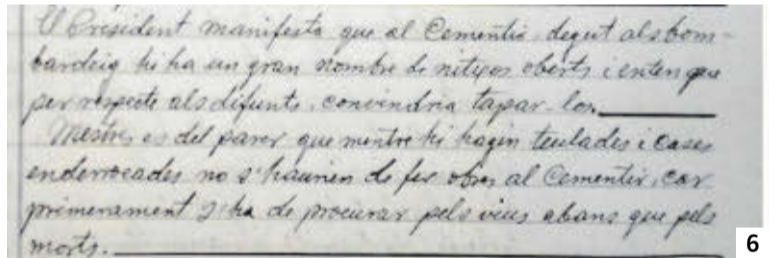 El President manifesta que al Cementir, degut als bom-
bardeig hi ha un gran nombre de nitxos oberts i enten que
per respecte als difunts, convindria tapar-los,
Mestres es del parer que mentre hi hagin teulades i cases
enderrocades no s'haurien de fer obres al Cementir, car
primerament s'ha de procurar pels vius abans que pels
morts.
6